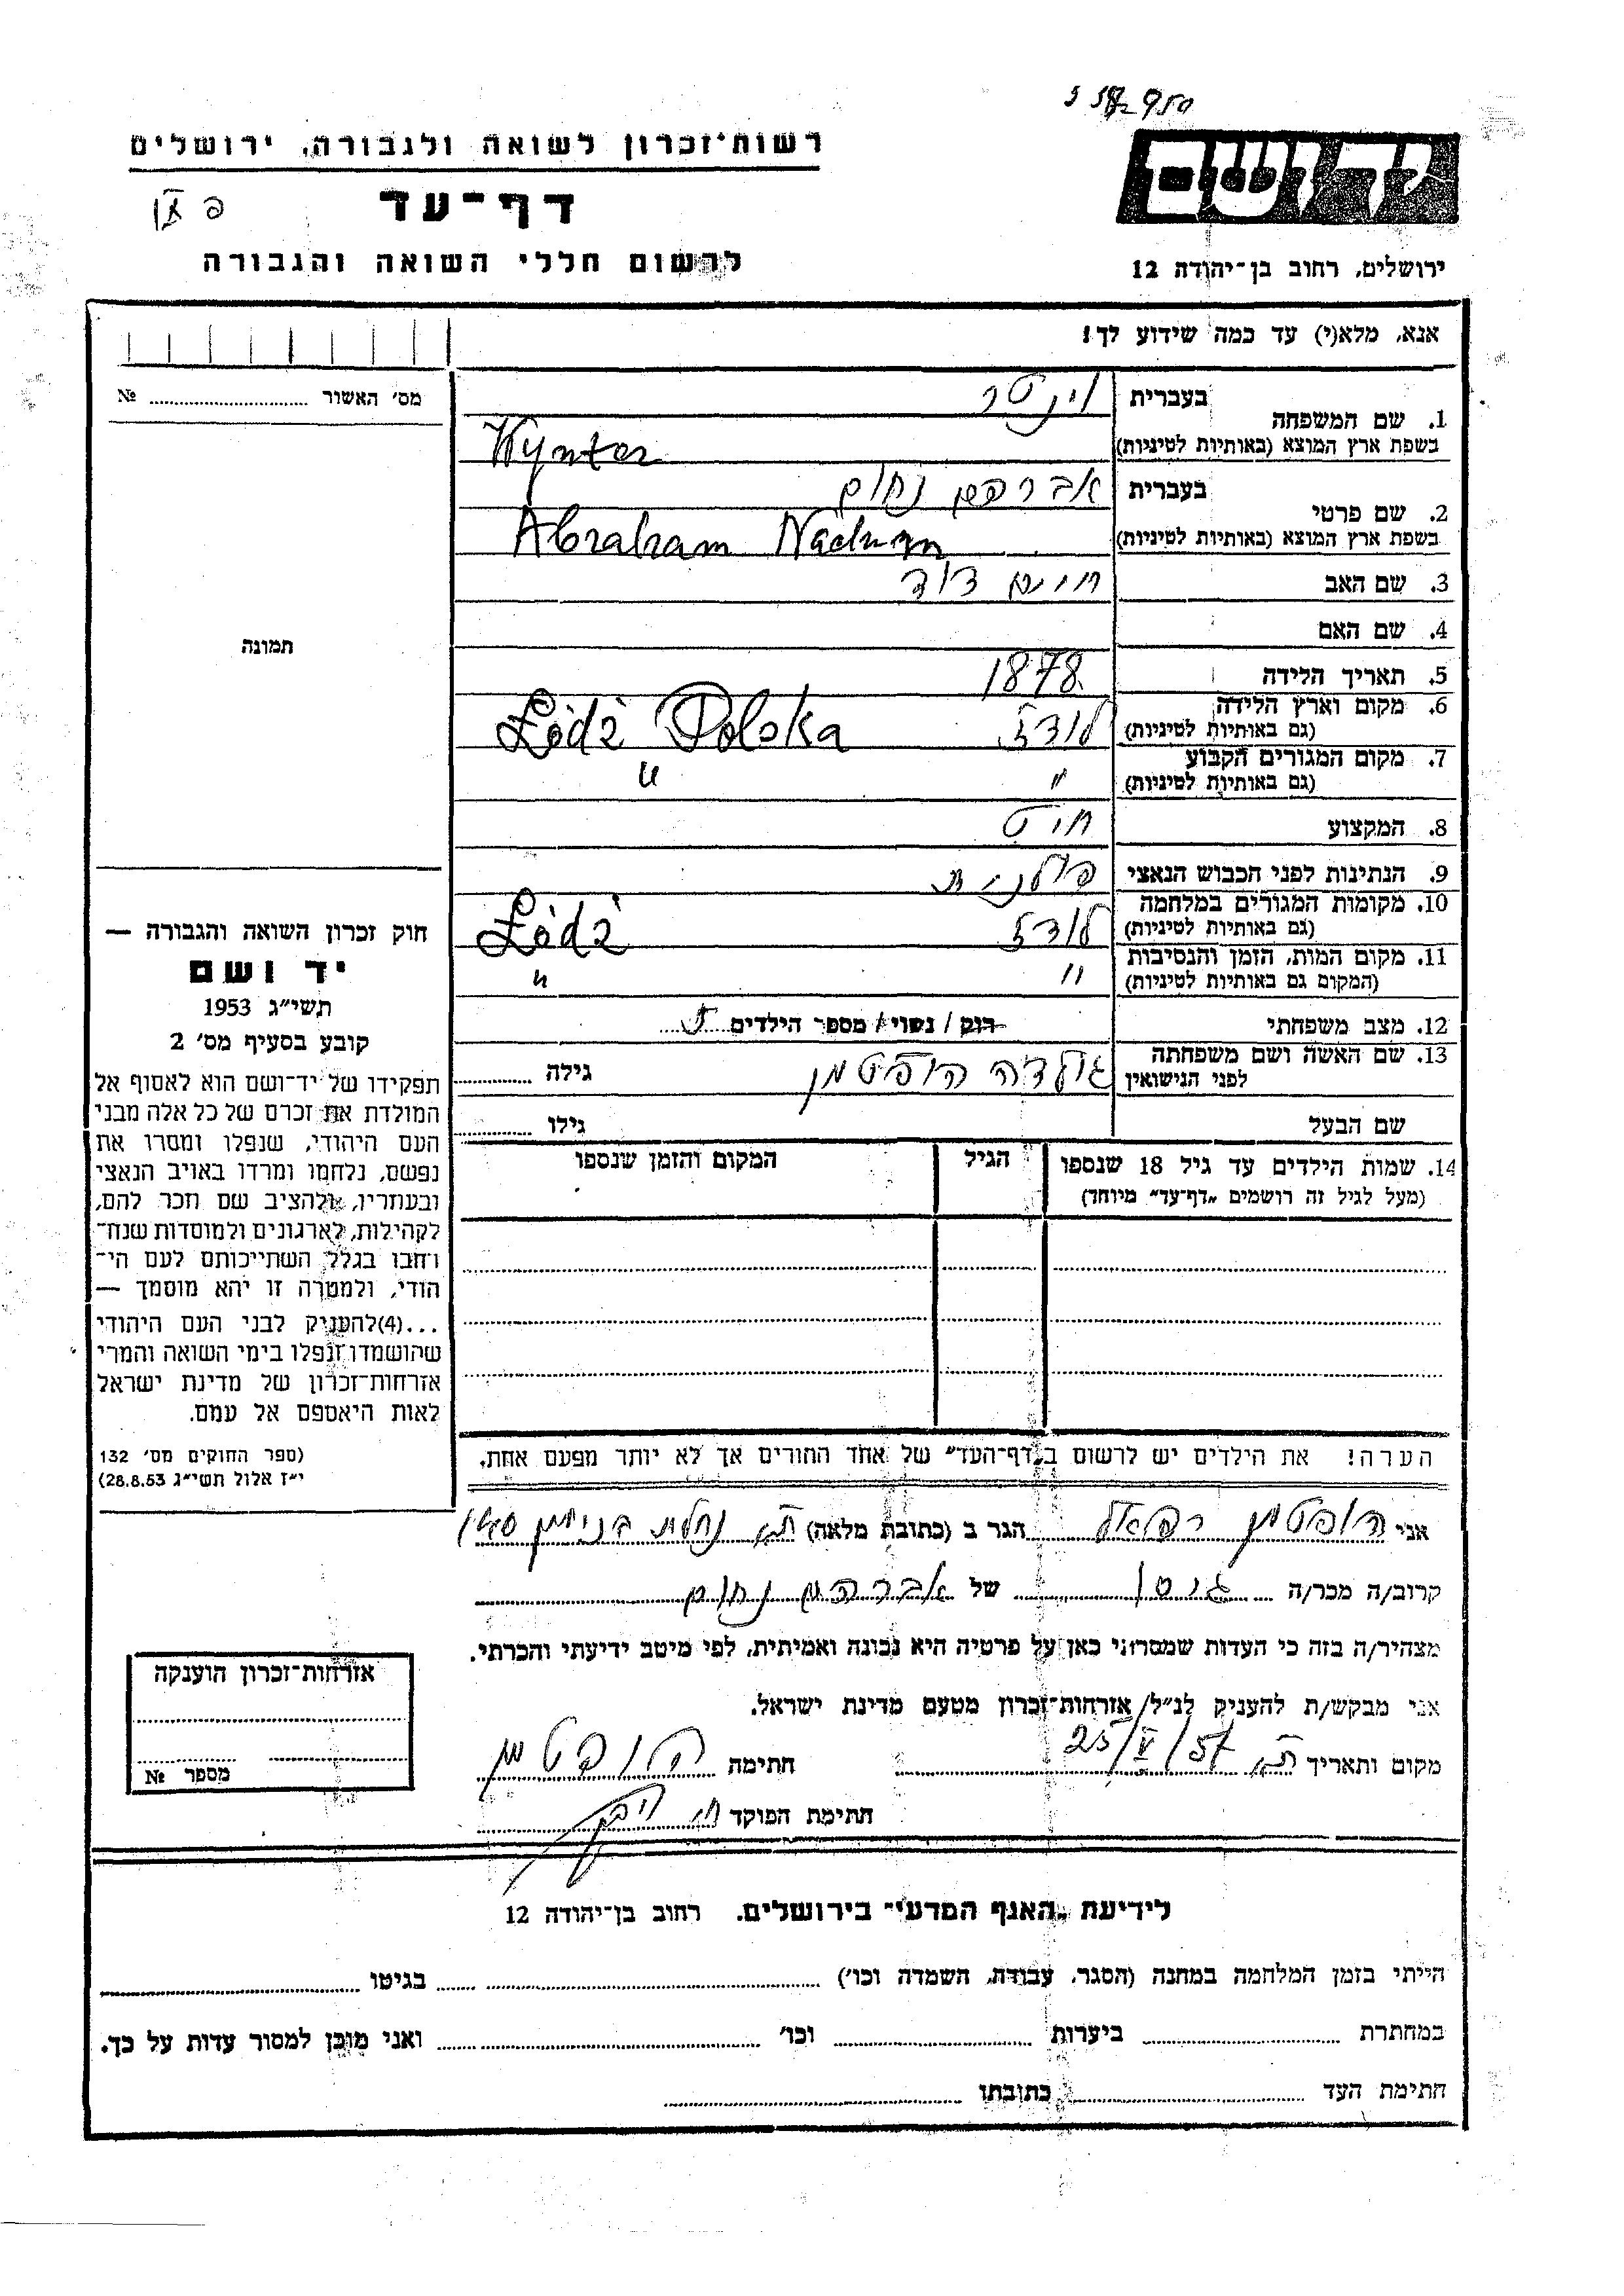 רשות־זכרון לשואה ולגבורה, ירושלים
דף־עד
לרשום חללי השואה והגבורה
יד ושם
ירושלים, רחוב בן־יהודה 12
אנא, מלא(י) עד כמה שידוע לך!
מס' האשור № 
תמונה
1. שם המשפחה בעברית וינטר
בשפת ארץ המוצא (באותיות לטיניות) Wynter
2. שם פרטי בעברית אברהם נחום
בשפת ארץ המוצא (באותיות לטיניות) Abraham Nachum
3. שם האב חיים דוד
4. שם האם
5. תאריך הלידה 1878
6. מקום וארץ הלידה (גם באותיות לטיניות) לודז Łódź Polska
7. מקום המגורים הקבוע (גם באותיות לטיניות) " "
8. המקצוע חיט
9. הנתינות לפני הכבוש הנאצי פולנית
10. מקומות המגורים במלחמה (גם באותיות לטיניות) לודז Łódź
11. מקום המות, הזמן והנסיבות (המקום גם באותיות לטיניות) " "
12. מצב משפחתי רוק / נשוי / מספר הילדים
13. שם האשה ושם משפחתה לפני הנישואין גולדה הופטמן גילה
שם הבעל גילו
14. שמות הילדים עד גיל 18 שנספו הגיל המקום והזמן שנספו
(מעל לגיל זה רושמים "דף־עד" מיוחד)
הערה! את הילדים יש לרשום ב"דף־העד" של אחד ההורים אך לא יותר מפעם אחת.
חוק זכרון השואה והגבורה —
יד ושם
תשי"ג 1953
קובע בסעיף מס' 2
תפקידו של יד־ושם הוא לאסוף אל
המולדת את זכרם של כל אלה מבני
העם היהודי, שנפלו ומסרו את
נפשם, נלחמו ומרדו באויב הנאצי
ובעוזריו, ולהציב שם וזכר להם,
לקהילות, לארגונים ולמוסדות שנח־
רבו בגלל השתייכותם לעם הי־
הודי, ולמטרה זו יהא מוסמך —
...(4) להעניק לבני העם היהודי
שהושמדו ונפלו בימי השואה והמרי
אזרחות־זכרון של מדינת ישראל
לאות היאספם אל עמם.
(ספר החוקים מס' 132
י"ז אלול תשי"ג 28.8.53)
אני הופטמן רפאל הגר ב (כתובת מלאה) ת"א נחלת בנימין
קרוב/ה מכר/ה גיסו של אברהם נחום
מצהיר/ה בזה כי העדות שמסרתי כאן על פרטיה היא נכונה ואמיתית, לפי מיטב ידיעתי והכרתי.
אני מבקש/ת להעניק לנ"ל/ אזרחות־זכרון מטעם מדינת ישראל.
מקום ותאריך ת"א 25/V/57 חתימה הופטמן
חתימת הפוקד
אזרחות־זכרון הוענקה
מספר №
לידיעת "האגף המדעי" בירושלים. רחוב בן־יהודה 12
הייתי בזמן המלחמה במחנה (הסגר, עבודה, השמדה וכו') בגיטו
במחתרת ביערות וכו' ואני מוכן למסור עדות על כך.
חתימת העד כתובתו